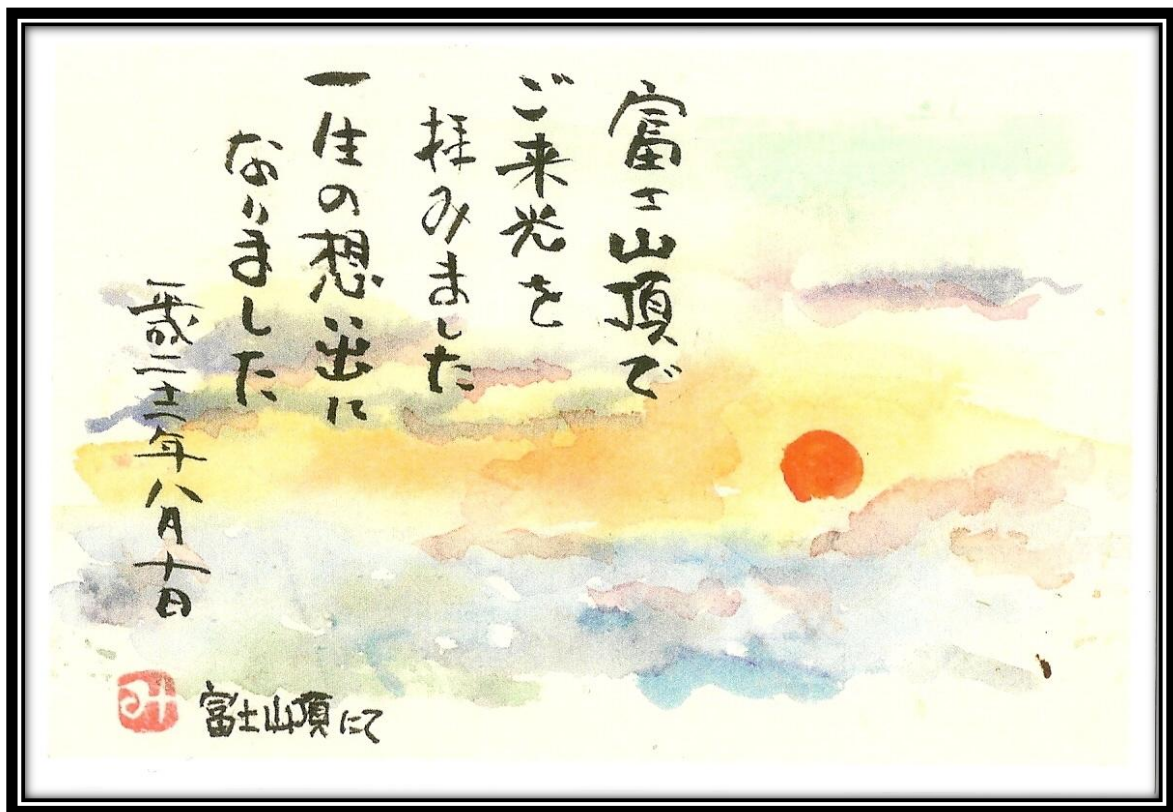 富士山頂で
ご来光を
拝みました
一生の想い出に
なりました
平成二十二年八月十日
み
富士山頂にて